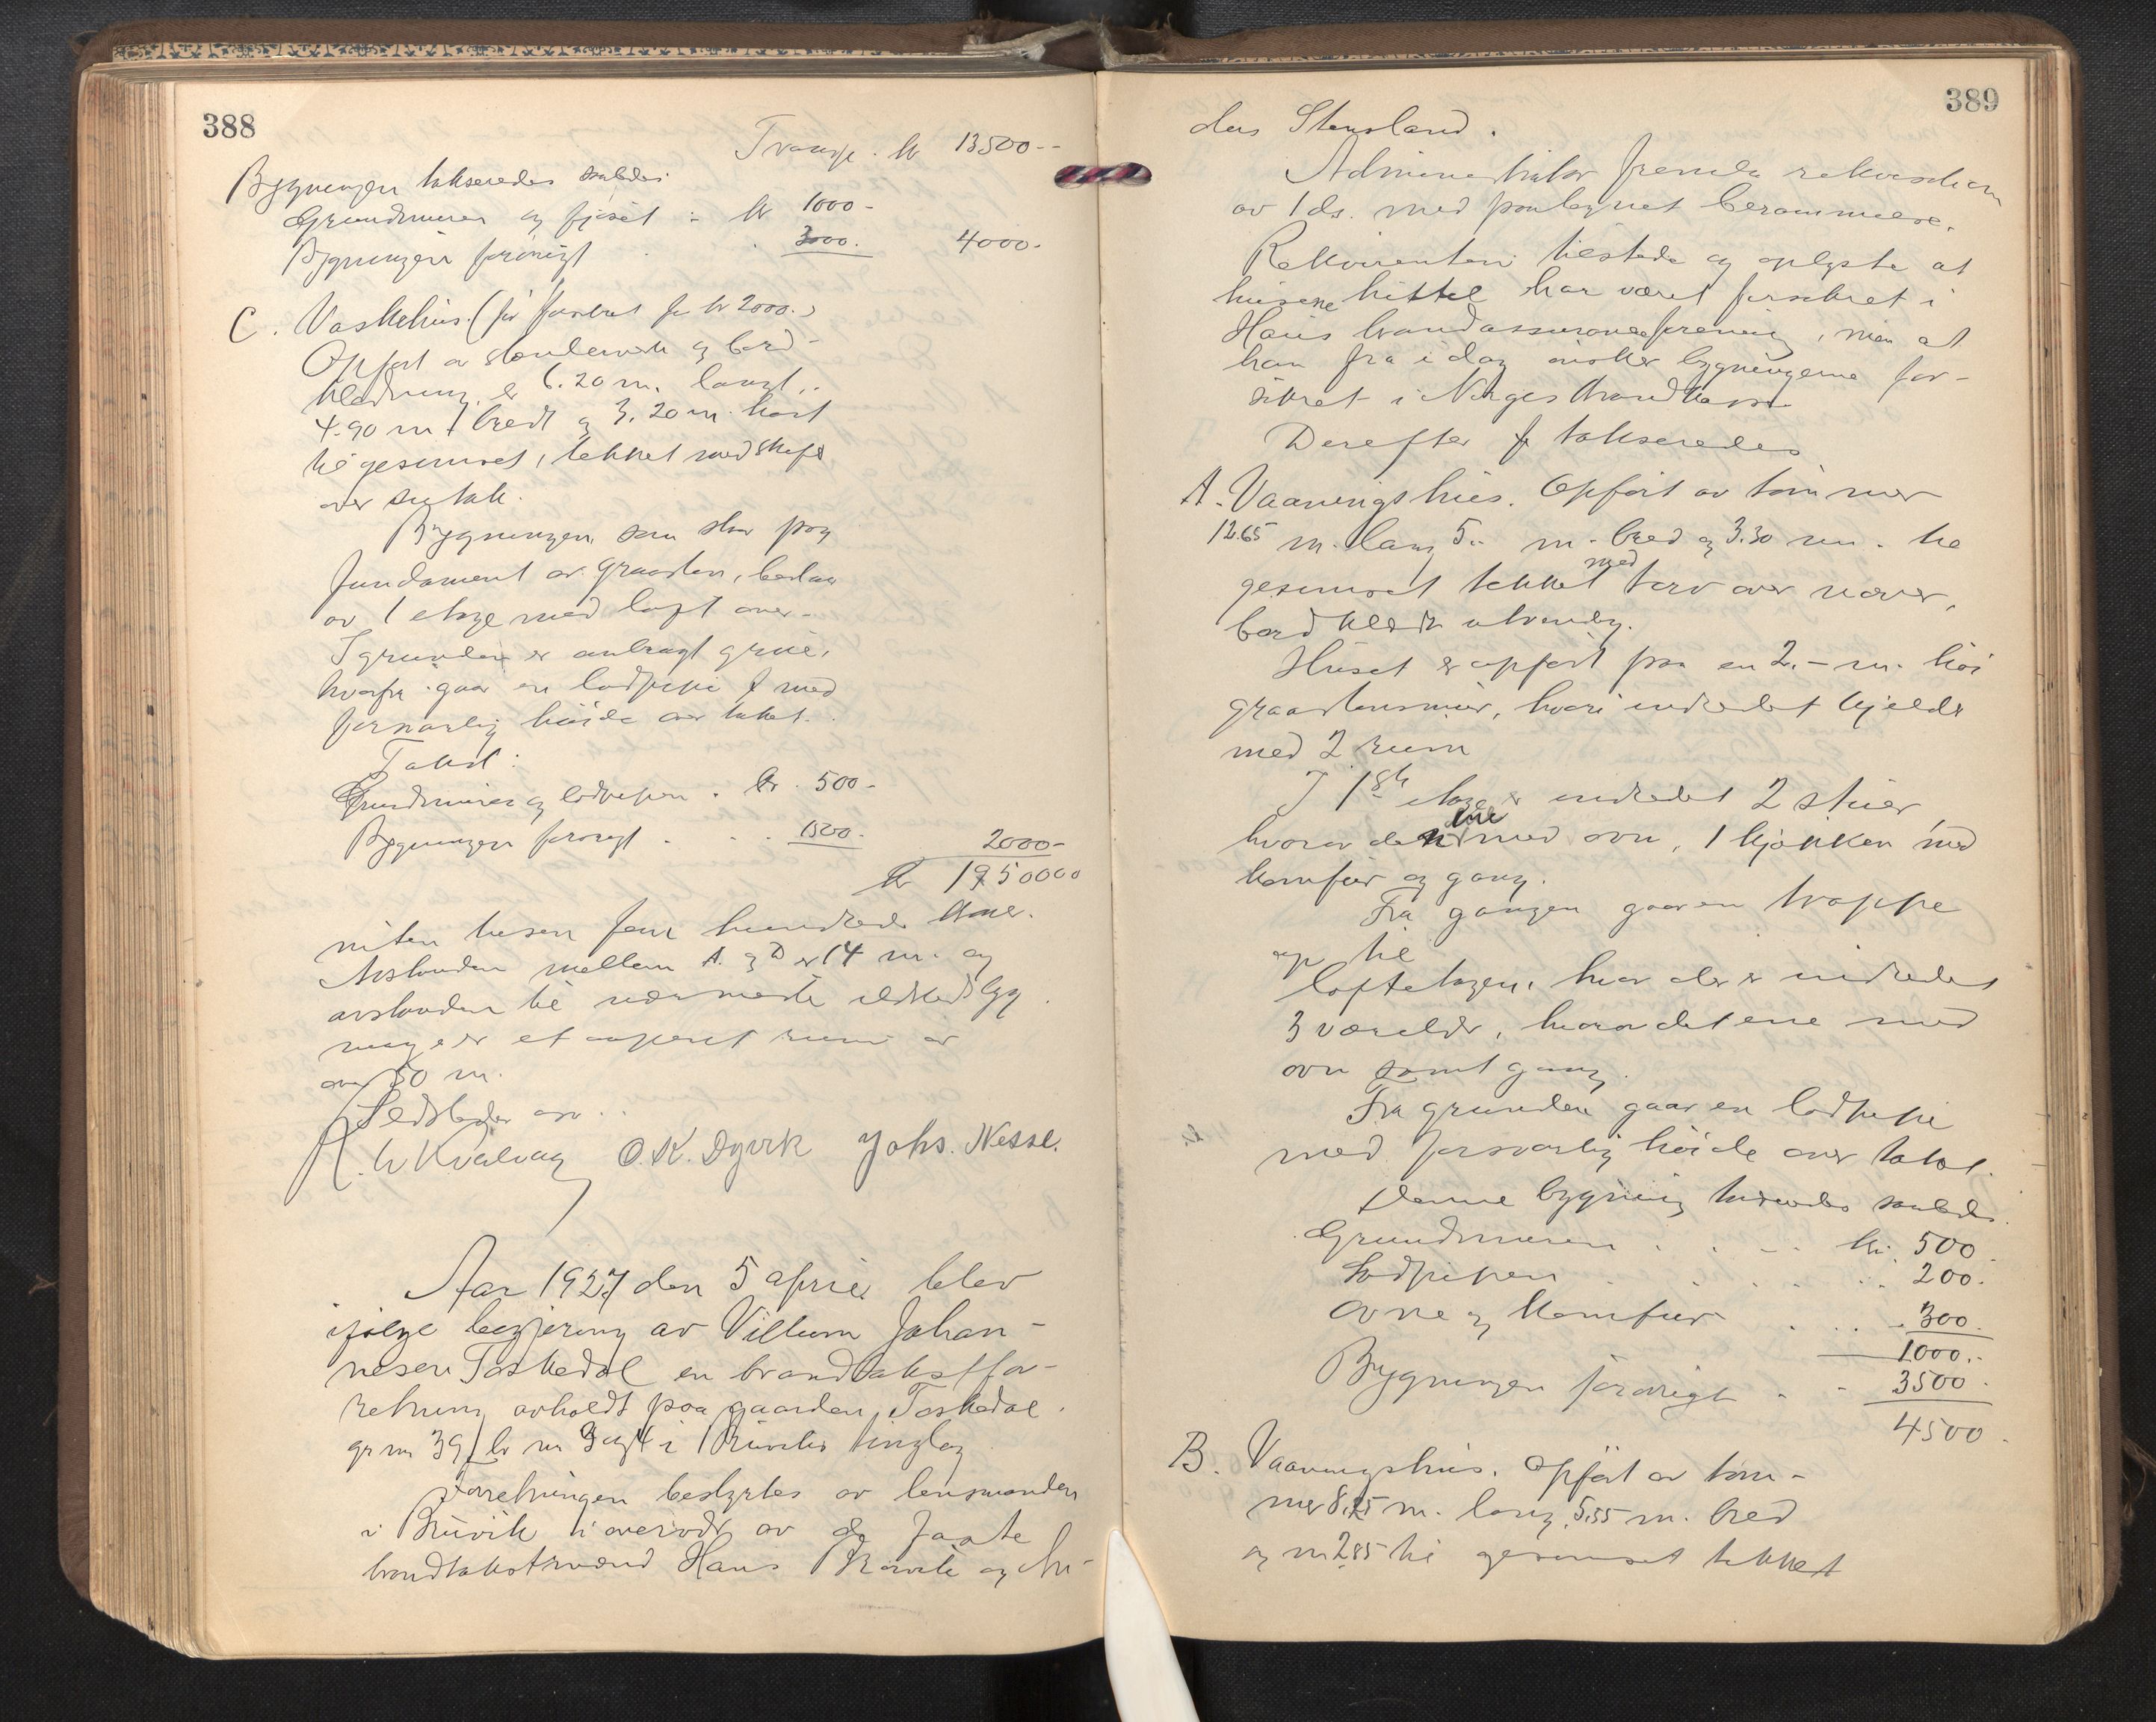 388
Transp. kr 13500--
Bygningen takseredes saaledes
Grundmuren og fjøset : kr 1000-
Bygningen forøvrigt . . 3000. 4000-
C. Vaskehus. (før forsikret for kr 2000.)
Opført av stenderverk og bord-
klædning, er 6.20 m. langt,
4.90 m bredt og 3.20 m. høit
til gesimset, tekket med skifer
over sutak.
Bygningen, som staar paa
fundament av graasten, bestaar
av 1 etage med loft over.
I grunden er anbragt grue,
hvorfra gaar en lodpipe med
forsvarlig høide over taket.
Takst:
Grundmuren og lodpipen . kr. 500-
Bygningen forøvrigt . . . 1500. 2000-
kr 1950000
nitten tusen fem hundrede kroner.
Avstanden mellem A. og D er 14 m. og
avstanden til nærmeste ildsted
er et aapent rum av
over 50 m.
O.K. Dyvik Johs. Nesse.
Aar 1927 den 5 april blev
ifølge begjæring av Villum Johan-
nesen Taskedal en brandtakstfor-
retning avholdt paa gaarden Taskedal
gr nr 39 br nr 3 og 4 i Bruviks tinglag
Forretningen bestyrtes av lensmanden
i Bruvik i overvær av de faste
brandtakstmænd Hans Bruvik og An-
389
ders Stensland.
Administrator fremla rekvisition
av 1 ds. med paategnet berammelse.
Rekvirenten tilstede og oplyste at
husene hittil har været forsikret i
Haus brandassuranceforening, men at
han fra idag ønsker bygningerne for-
sikret i Norges Brandkasse
Derefter takseredes
A. Vaaningshus. Opført av tømmer
12.65 m. lang 5.. m. bred og 3.30 m. til
gesimset tekket med torv over næver,
bordklædt utvendig.
Huset er opført paa en 2.- m. høi
graastensmur, hvori indredet kjelder
med 2 rum
I 1ste etage er indredet 2 stuer,
hvorav den ene med ovn, 1 kjøkken med
komfur og gang.
Fra gangen gaar en trappe
op til
loftetagen, hvor der er indredet
3 værelser, hvorav det ene med
ovn samt gang.
Fra grunden gaar en lodpipe
med forsvarlig høide over taket.
Denne bygning vurderedes saaledes.
Grundmuren . . . . kr. 500.
Lodpipen . . . . . 200.
Ovne og komfur . . . . 300.
1000.-
Bygningen forøvrigt . . 3500.
4500.
B. Vaaningshus. Opført av tøm-
mer 8.25 m. lang, 5.55 m. bred
og m 2.85 til gesimset tekket